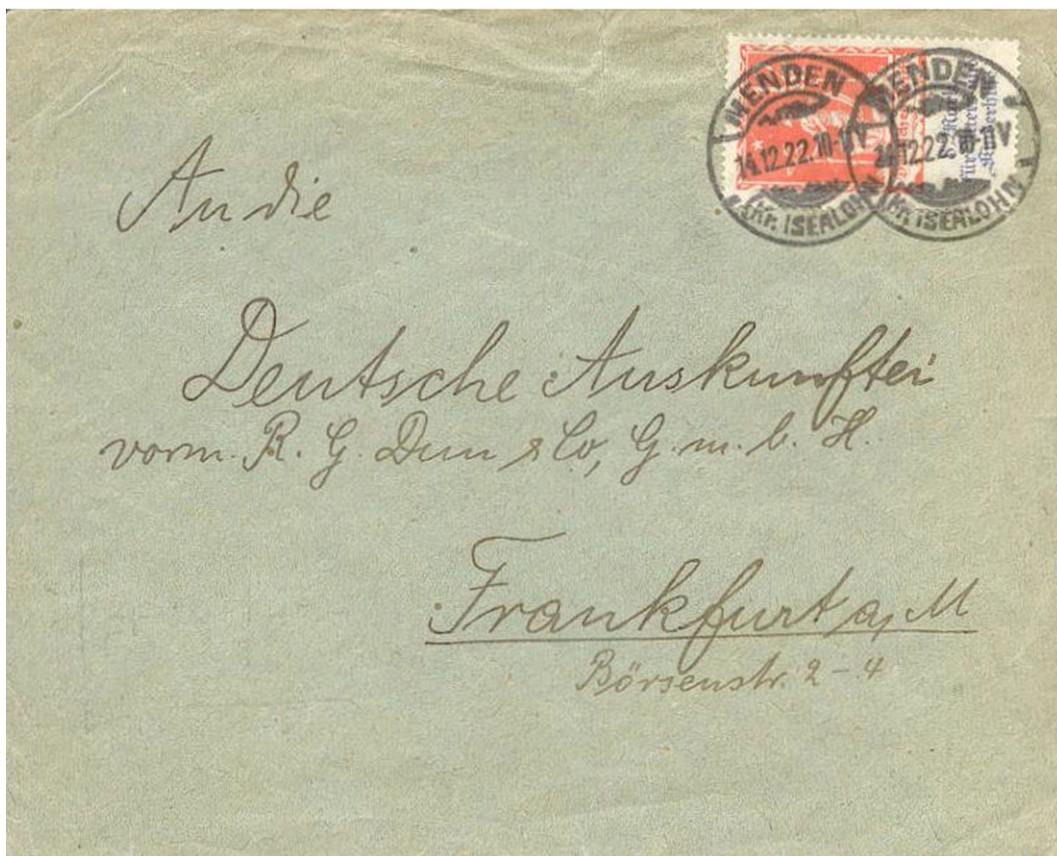 MENDEN
14.12.22.10-11V
(KR. ISERLOHN)
MENDEN
14.12.22.10-11V
(KR. ISERLOHN)
An die
Deutsche Auskunftei
vorm. R. G. Dun & Co, G. m. b. H.
Frankfurt a, M
Börsenstr. 2-4